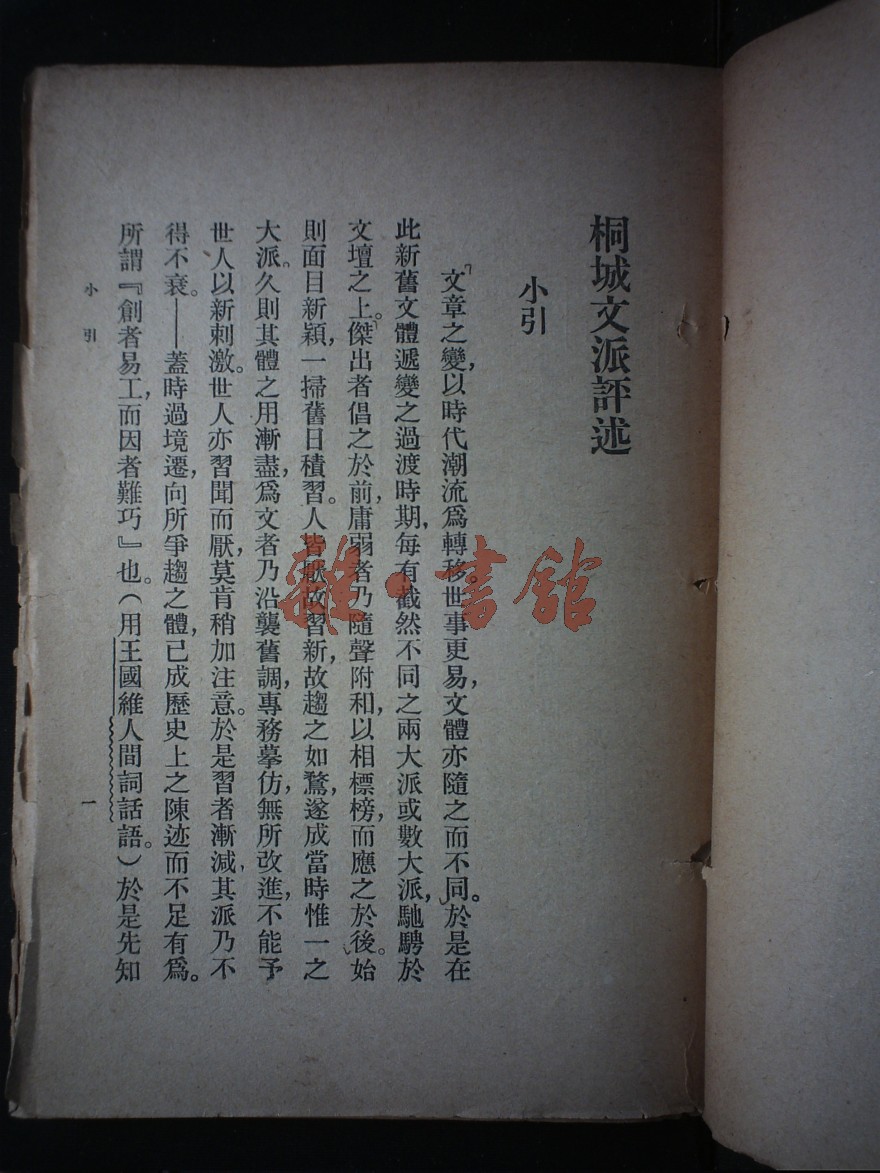 桐城文派評述
小引
文章之變，以時代潮流爲轉移。世事更易，文體亦隨之而不同。於是在
此新舊文體遞變之過渡時期，每有截然不同之兩大派或數大派，馳騁於
文壇之上。傑出者倡之於前，庸弱者乃隨聲附和，以相標榜，而應之於後。始
則面目新穎，一掃舊日積習。人皆厭故習新，故趨之如鶩，遂成當時惟一之
大派。久則其體之用漸盡，爲文者乃沿襲舊調，專務摹仿，無所改進，不能予
世人以新刺激。世人亦習聞而厭，莫肯稍加注意。於是習者漸減，其派乃不
得不衰。——蓋時過境遷，向所爭趨之體，已成歷史上之陳迹而不足有爲。
所謂『創者易工，而因者難巧』也。（用王國維人間詞話語。）於是先知
小引
一
雜·書館